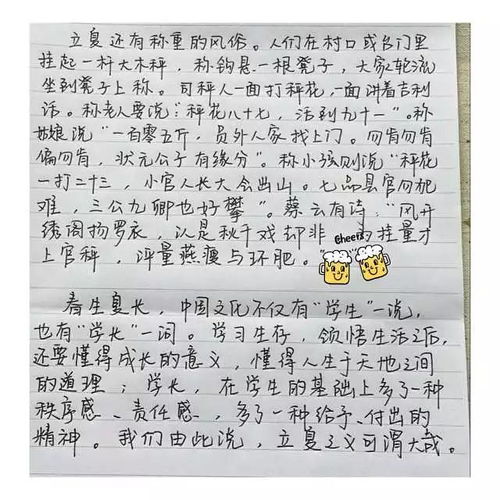 立夏还有称重的风俗。人们在村口或台门里
挂起一杆大木秤，秤钩悬一根凳子，大家轮流
坐到凳子上称。司秤人一面打秤花，一面讲着吉利
话。称老人要说："秤花八十七，活到九十一"。称
姑娘说"一百零五斤，员外人家找上门。勿肯勿肯
偏勿肯，状元公子有缘分"。称小孩则说"秤花
一打二十三，小官人长大会出山。七品县官勿犯
难，三公九卿也好攀"。蔡云有诗："风开
绣阁扬罗衣，认是秋千戏却非 挂量才
上官秤，评量燕瘦与环肥。
Cheers
春生夏长，中国文化不仅有"学生"一说，
也有"学长"一词。学习生存，领悟生活之后，
还要懂得成长的意义，懂得人生于天地之间
的道理；学长，在学生的基础上多了一种
秩序感、责任感，多了一种给予、付出的
精神。我们由此说，立夏之义可谓大哉。